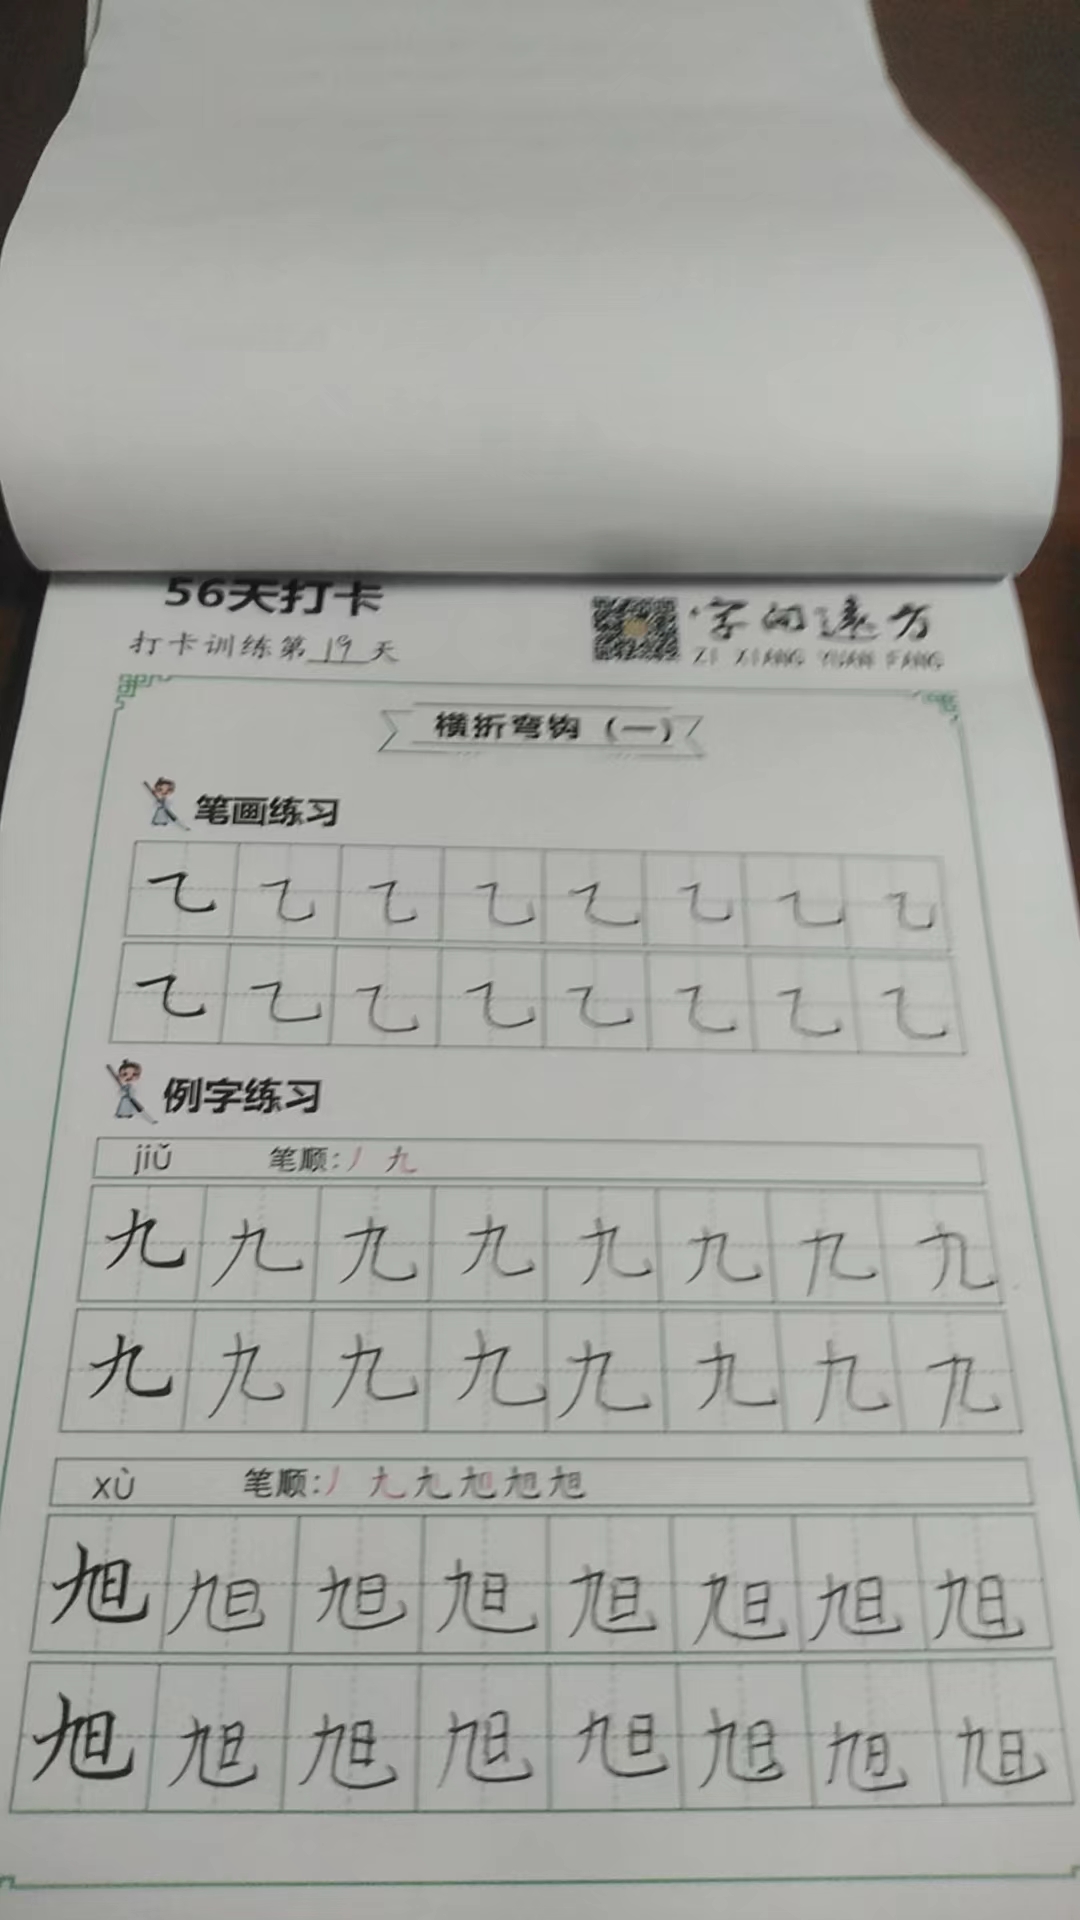 56天打卡
打卡训练第19天
字向远方
ZI XIANG YUAN FANG
横折弯钩（一）
笔画练习
乙 乙 乙 乙 乙 乙 乙 乙
乙 乙 乙 乙 乙 乙 乙 乙
例字练习
jiǔ 笔顺:丿 九
九 九 九 九 九 九 九 九
九 九 九 九 九 九 九 九
xù 笔顺:丿 九 九 旭 旭 旭
旭 旭 旭 旭 旭 旭 旭 旭
旭 旭 旭 旭 旭 旭 旭 旭